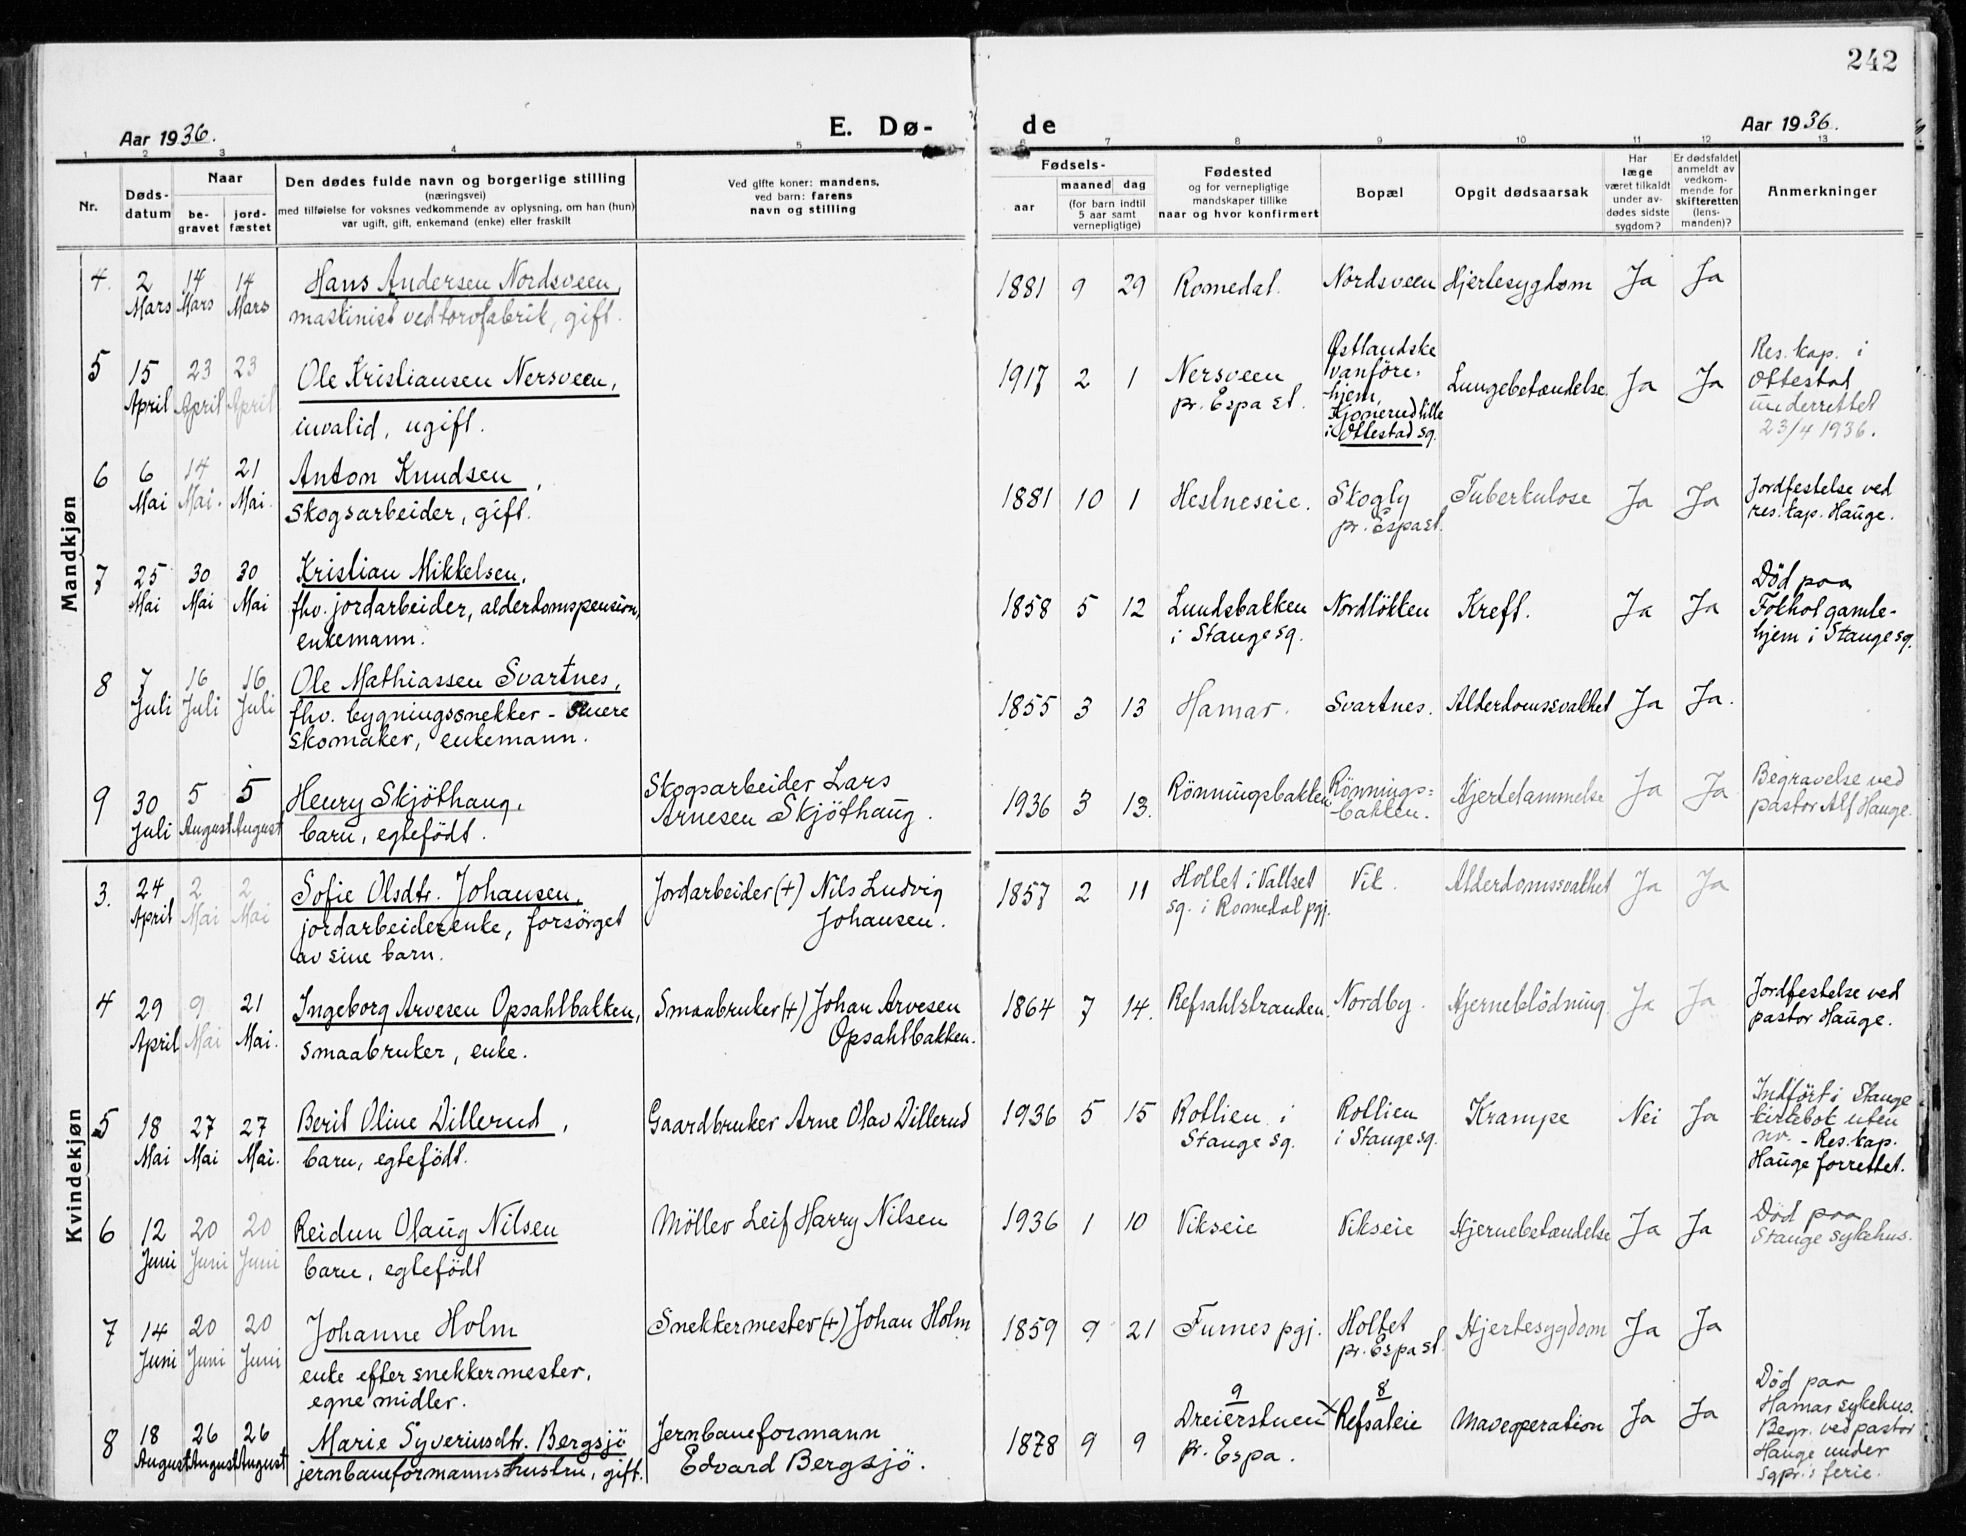 242
Aar 1936.
E. Dø-
de
Aar 1936.
1 2 3 4 5 6 7 8 9 10 11 12 13
Nr.
Døds-
datum
Naar
be-
gravet
jord-
fæstet
Den dødes fulde navn og borgerlige stilling
(næringsvei)
med tilføielse for voksnes vedkommende av oplysning, om han (hun)
var ugift, gift, enkemand (enke) eller fraskilt
Ved gifte koner: mandens,
ved barn: farens
navn og stilling
Fødsels-
aar
maaned dag
(for barn indtil
5 aar samt
vernepligtige)
Fødested
og for vernepligtige
mandskaper tillike
naar og hvor konfirmert
Bopæl
Opgit dødsaarsak
Har
læge
været tilkaldt
under av-
dødes sidste
sygdom?
Er dødsfaldet
anmeldt av
vedkom-
mende for
skifteretten
(lens-
manden)?
Anmerkninger
Mandkjøn
4. 2 Mars 14 Mars 14 Mars
Hans Andersen Nordsveen,
maskinist ved torvfabrik, gift.
1881 9 29 Romedal. Nordsveen Hjertesygdom Ja Ja
5 15 April 23 April 23 April
Ole Kristiansen Nersveen,
invalid, ugift.
1917 2 1
Nersveen
pr. Espa st.
Østlandske
vanföre-
hjem,
Kjonerud lille
i Ottestad sg.
Lungebetændelse. Ja Ja
Res. kap. i
Ottestad
underrettet
23/4 1936.
6 6 Mai 14 Mai. 21 Mai.
Anton Knudsen,
skogsarbeider, gift.
1881 10 1 Hestneseie.
Skogly
pr. Espa st.
Tuberkulose Ja Ja
Jordfestelse ved
res. kap. Hauge.
7 25 Mai 30 Mai 30 Mai
Kristian Mikkelsen,
fhv. jordarbeider, alderdomspension,
enkemann.
1858 5 12
Lundsbakken
i Stange sg.
Nordlökken Kreft. Ja Ja
Död paa
Fokhol gamle-
hjem i Stange sg.
8 7 Juli 16 Juli 16 Juli
Ole Mathiassen Svartnes,
fhv. bygningssnekker - senere
skomaker, enkemann.
1855 3 13 Hamar. Svartnes. Alderdomssvakhet Ja Ja.
9 30 Juli 5 August 5 August
Henry Skjöthaug,
barn, egtefödt.
Skogsarbeider Lars
Arnesen Skjöthaug.
1936 3 13. Rönningsbakken
Rönnings-
bakken.
Hjertelammelse Ja Ja
Begravelse ved
pastor Alf Hauge.
Kvindekjøn
3. 24 April 2 Mai 2 Mai
Sofie Olsdtr. Johansen,
jordarbeiderenke, forsörget
av sine barn.
Jordarbeider (+) Nils Ludvig
Johansen.
1857 2 11
Holtet i Vallset
sg. i Romedal pgj.
Vik. Alderdomssvakhet Ja Ja
4 29 April 9 Mai 21 Mai.
Ingeborg Arvesen Opsahlbakken,
smaabruker, enke.
Smaabruker (+) Johan Arvesen
Opsahlbakken.
1864 7 14. Refsahlstranden. Nordby. Hjerneblödning. Ja Ja
Jordfestelse ved
pastor Hauge.
5 18 Mai 27 Mai 27 Mai.
Berit Oline Dillerud,
barn, egtefödt.
Gaardbruker Arne Olav Dillerud
1936 5 15
Rotlien i
Stange sg.
Rotlien
i Stange sg.
Krampe Nei Ja
Indfört i Stange
kirkebok uten
nr. - Res. kap.
Hauge forrettet.
6 12 Juni 20 Juni 20 Juni
Reidun Olaug Nilsen
barn, egtefödt
Möller Leif Harry Nilsen
1936 1 10 Vikseie Vikseie Hjernebetændelse Ja Ja
Död paa
Stange sykehus.
7 14 Juni 20 Juni 20 Juni
Johanne Holm
enke efter snekkermester,
egne midler.
Snekkermester (+) Johan Holm
1859 9 21 Furnes pgj.
Holtet
pr. Espa st.
Hjertesygdom Ja Ja
8 18 August 26 August 26 August
Marie Syverinsdtr. Bergsjö
jernbaneformannshustru, gift.
Jernbaneformann
Edvard Bergsjö.
1878 9 9
9 8
Dreierstuen x
pr. Espa.
Refsaleie Maveoperation Ja Ja
Död paa
Hamar sykehus.
Begr. ved pastor
Hauge under
sgpr.s ferie.